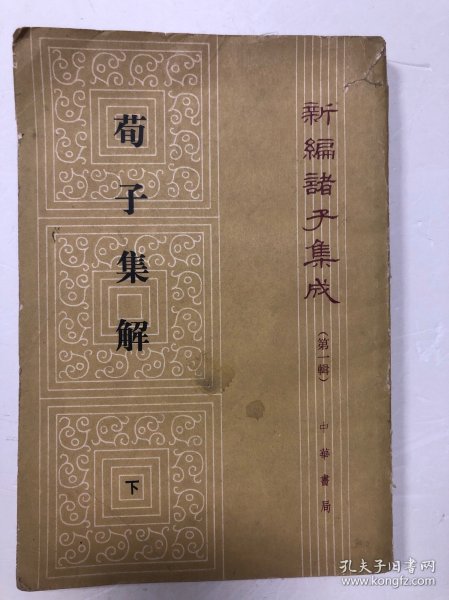 新編諸子集成
（第一輯）
中華書局
荀子集解
下
孔夫子旧书网
www.kongfz.com